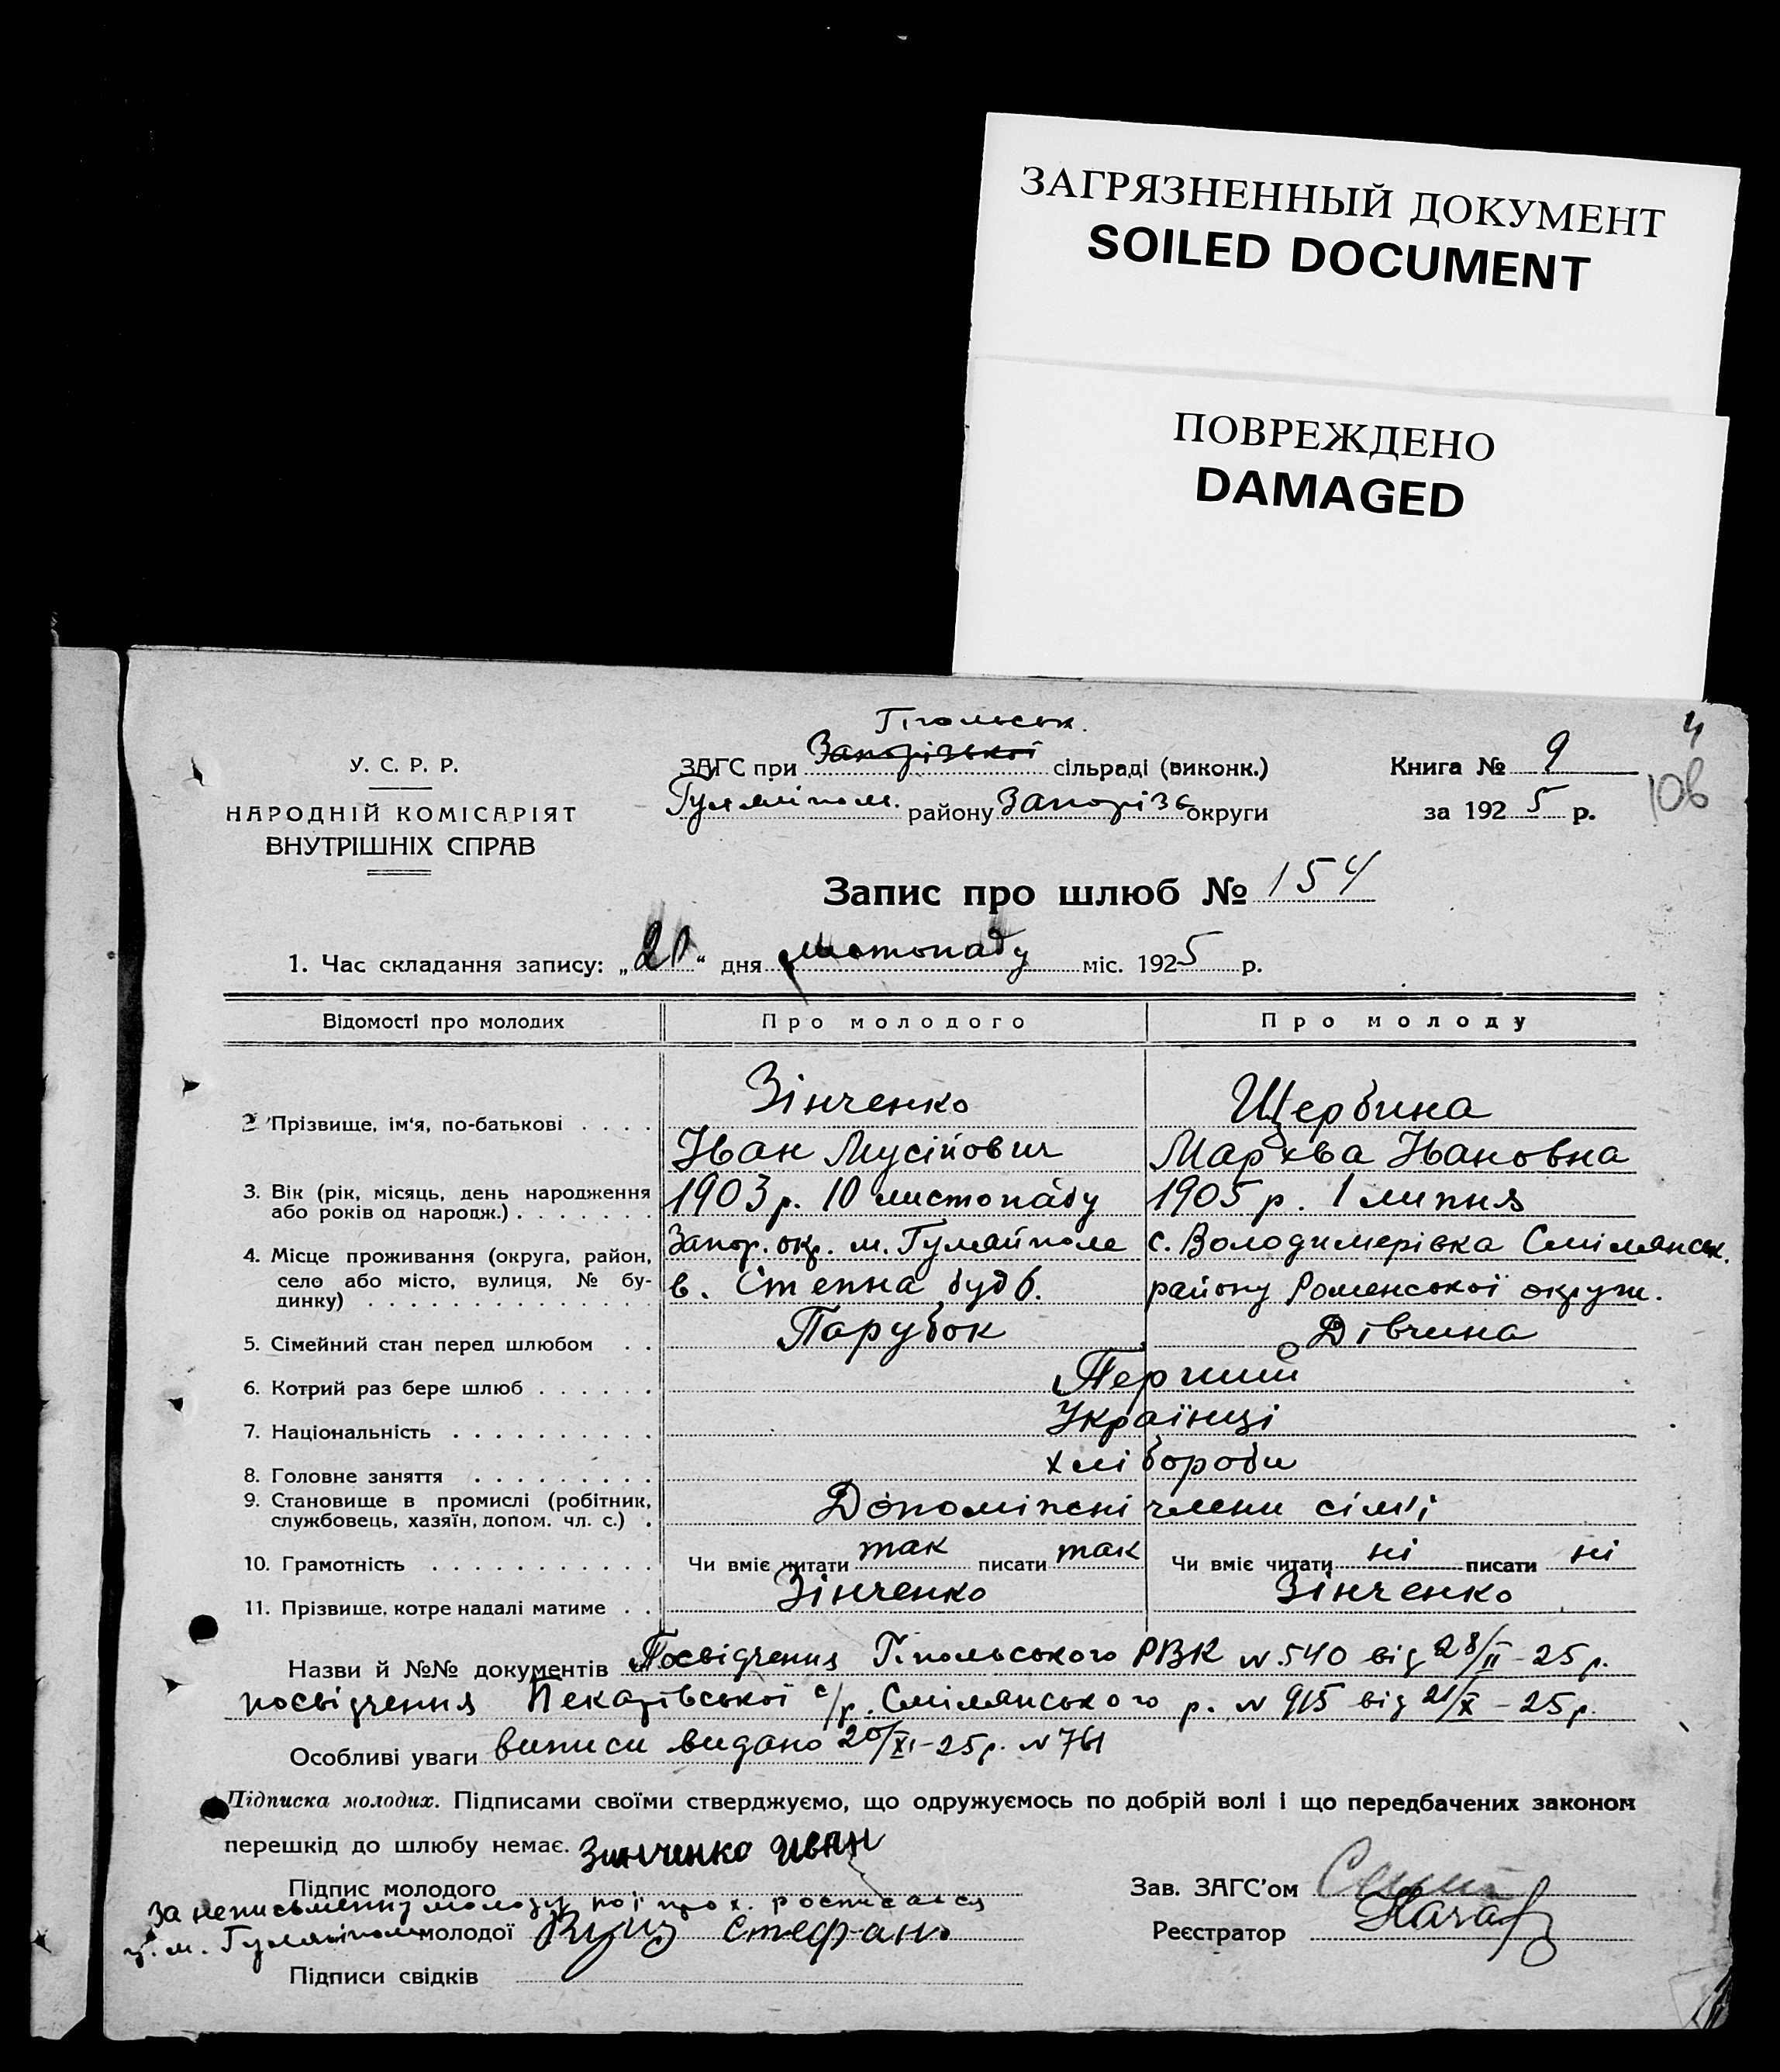 ЗАГРЯЗНЕННЫЙ ДОКУМЕНТ
SOILED DOCUMENT
ПОВРЕЖДЕНО
DAMAGED
4
У. С. Р. Р.
НАРОДНІЙ КОМІСАРІЯТ
ВНУТРІШНІХ СПРАВ
Гпольськ.
ЗАГС при Запорізької сільраді (виконк.)
Гуляйпол. району Запорізь округи
Книга № 9
за 1925 р.
106
Запис про шлюб № 154
1. Час складання запису: „20“ дня листопаду міс. 1925 р.
Відомості про молодих Про молодого Про молоду
2 Прізвище, ім‘я, по-батькові . . . . Зінченко Щербина
Іван Мусійович Мархва Івановна
3. Вік (рік, місяць, день народження або років од народж.) . . . . . . . 1903 р. 10 листопаду 1905 р. 1 липня
4. Місце проживання (округа, район, село або місто, вулиця, № будинку) . . . . . . . . . . . . . . Запор. окр. м. Гуляйполе с. Володимерівка Смілянськ.
в. Степна буд 6. району Роменської округи.
5. Сімейний стан перед шлюбом . . Парубок Дівчина
6. Котрий раз бере шлюб . . . . . . Перший
7. Національність . . . . . . . . . . Українці
8. Головне заняття . . . . . . . . . хлібороби
9. Становище в промислі (робітник, службовець, хазяїн, допом. чл. с.) . Допоміжні члени сімʼї
10. Грамотність . . . . . . . . . . . Чи вміє читати так писати так Чи вміє читати ні писати ні
11. Прізвище, котре надалі матиме . . Зінченко Зінченко
Назви й №№ документів Посвідчення Гпольського РВК № 540 від 28/II-25 р.
посвідчення Пекарівської с/р. Смілянського р. № 915 від 21/X-25 р.
Особливі уваги виписи видано 20/XI-25 р. № 761
Підписка молодих. Підписами своїми стверджуємо, що одружуємось по добрій волі і що передбачених законом
перешкід до шлюбу немає. Зинченко Иван
Підпис молодого
Зав. ЗАГС’ом
За неписьменну молоду по її прох. росписался
г. м. Гуляйполе молодої Стефан
Реєстратор
Підписи свідків